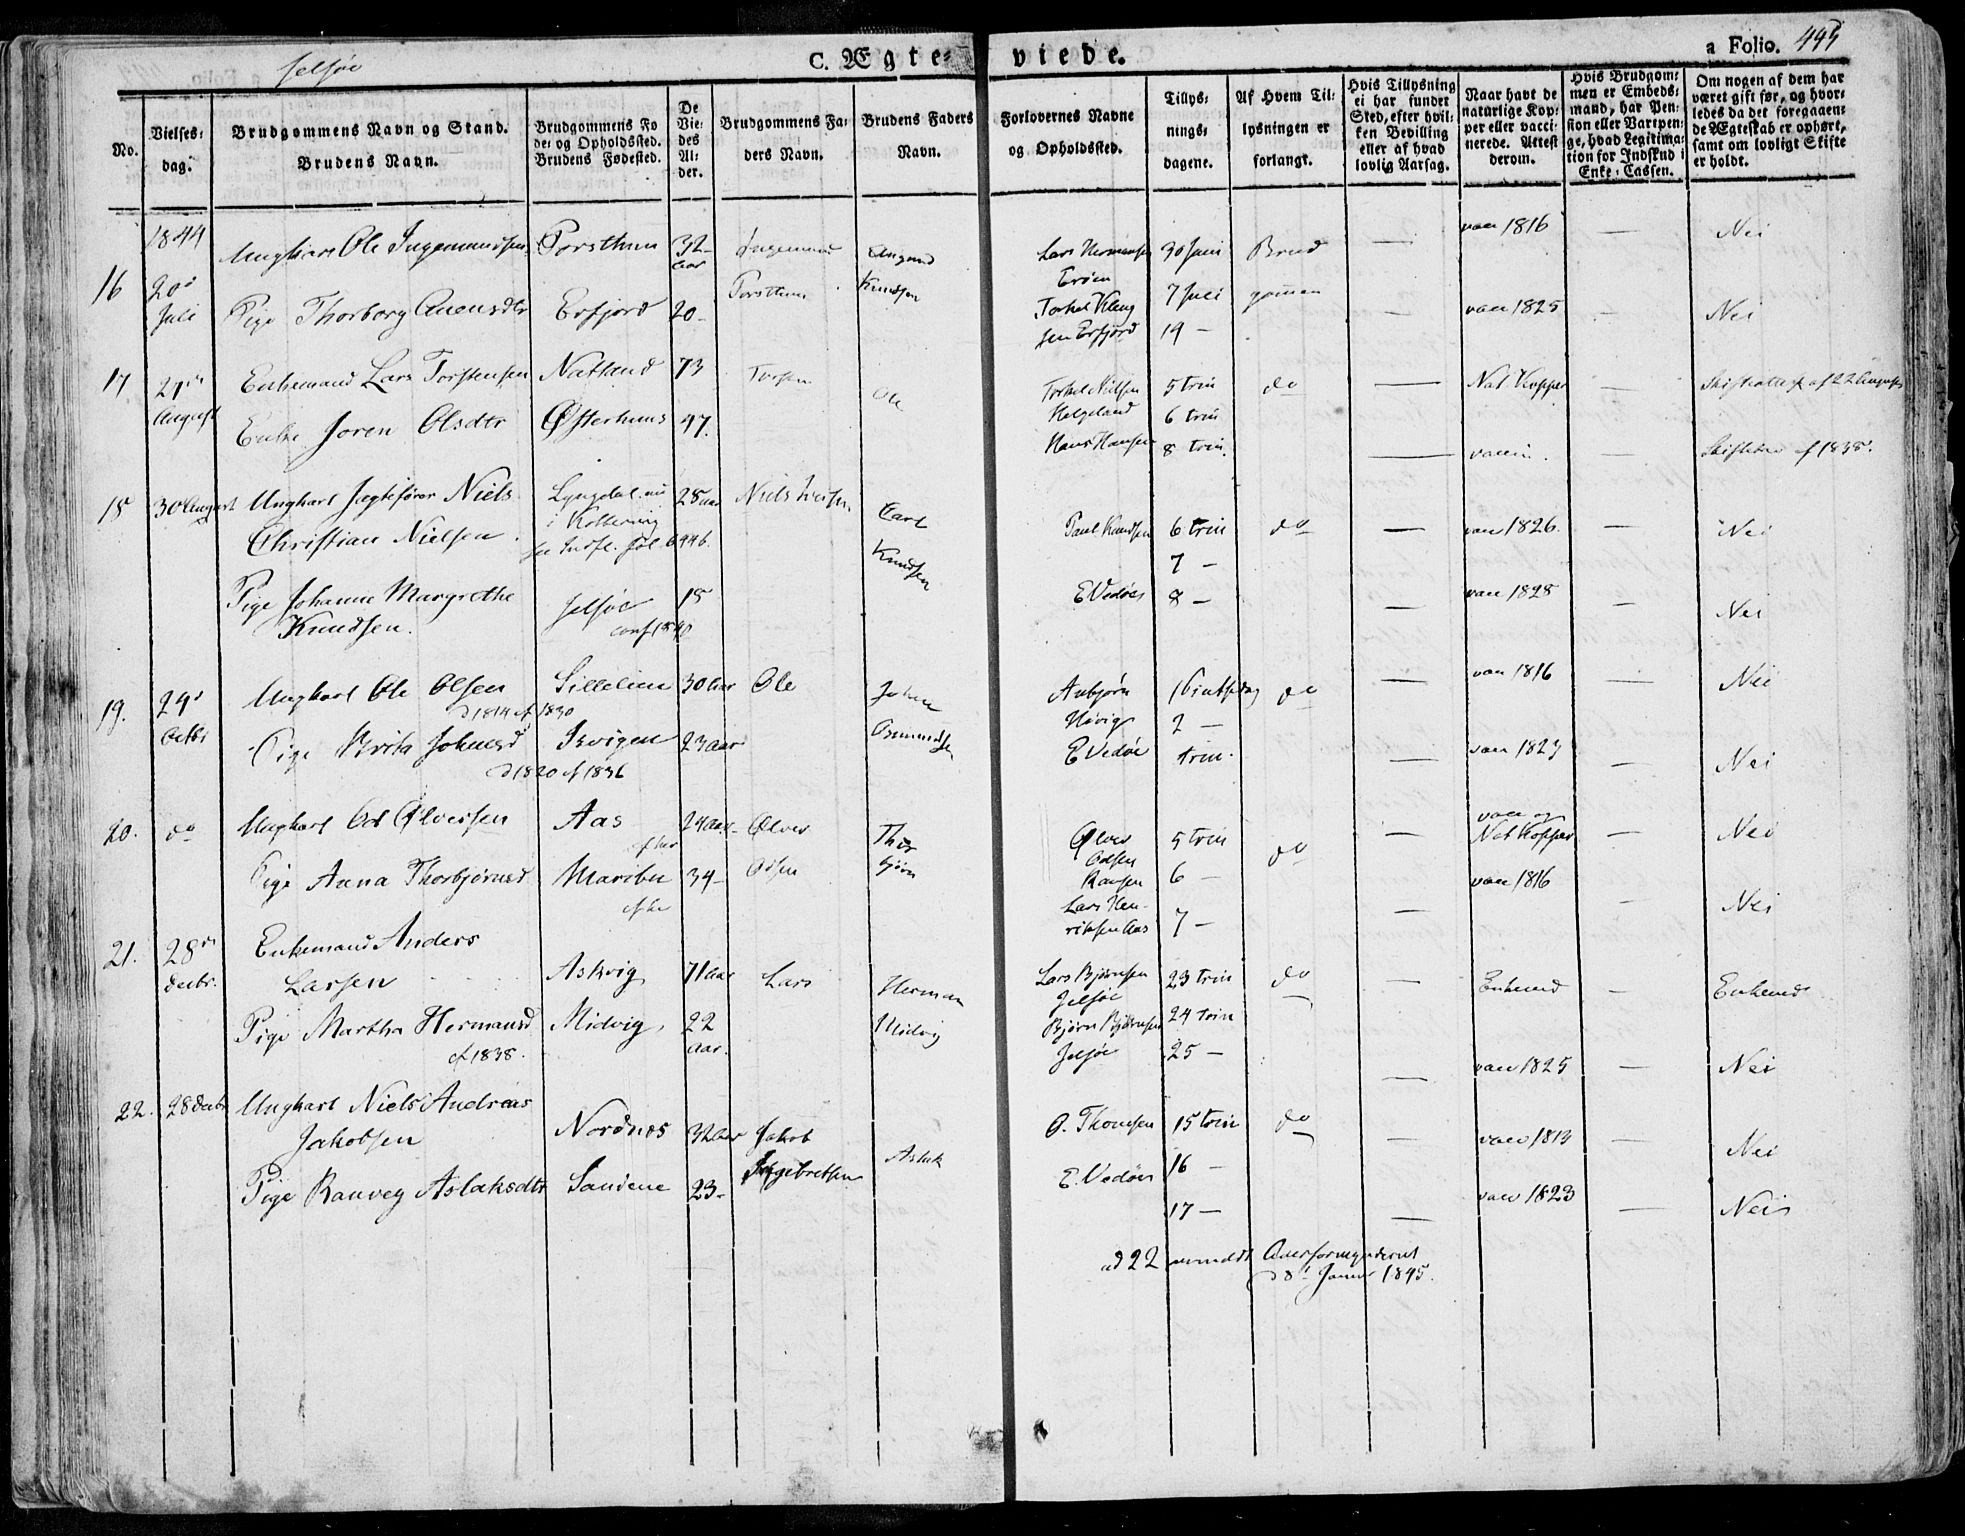 Jelsøe
C. Ægte-viede.
a Folio. 445
No.
Vielses-dag.
Brudgommens Navn og Stand.
Brudens Navn.
Brudgommens Fødе- og Opholdssted.
Brudens Fødested.
De Viedes Alder.
Brudgommens Faders Navn.
Brudens Faders Navn.
Forlovernes Navne og Opholdssted.
Tillysningsdagene.
Af Hvem Tillysningen er forlangt.
Hvis Tillysning ei har fundet Sted, efter hvilken Bevilling eller af hvad lovlig Aarsag.
Naar havt de naturlige Kopper eller vaccinerede. Attest derom.
Hvis Brudgommen er Embedsmand, har Pension eller Vartpenge, hvad Legitimation for Indskud i Enke-Cassen.
Om nogen af dem har været gift før, og hvorledes da det foregaaende Ægteskab er ophørt, samt om lovligt Skifte er holdt.
1844
16 20de Juli
Ungkarl Ole Ingemundsen Torsthun 32 Aar Ingemund Torsthun Lars Hermansen Erøen 30 Juni Brud vacc 1816 — Nei
Pige Thorborg Auensdtr Erfjord 20 - Knudsen Torkel Klengsen Erfjord 7 Juli 19 — gommen vacc 1825 — Nei
17 27de August
Enkemand Lars Torstensen Natland 73 Torsten Torkel Nilsen Helgeland 5 trin 6 trin do — Nat Kopper — Skifteattest af 22 August
Enke Joren Olsdtr Østerhuus 47. Ole Hans Hansen 8 trin. — vaccin. — af 1838.
18 30 August
Ungkarl Jægtefører Niels Christian Nielsen Lyngdal nu i 28 aar Niels Paul Knudsen 6 trin 7 — do — vacc 1826. — Nei
Pige Johanne Margrethe Knudsen. Jelsøe conf 1840 18 Carl Knudsen E Vedøes 8 — — vacc 1828 — Nei
19. 29de Octbr
Ungkarl Ole Olsen d 1814 cf 1830 Sillelien 30 Aar Ole Anbjørn Høivig 2 — do — vacc 1816 — Nei
Pige Brita Johnsd d 1820 cf 1836 23 Aar John E Vedøe trin. — vacc 1823 — Nei
20. do
Ungkarl Od Ølversen Aas 24 Aar Ølver Odsen Ølver Odsen 5 trin 6 — do — vacc og Nat Kopper — Nei
Pige Anna Thorbjørnsd Maribu 34 - Thorbjørn Lars Henriksen Aas 7 — — vacc 1816 — Nei
21. 28de Decbr.
Enkemand Anders Larsen Askvig 71 Aar Lars Lars Bjørnsen Jelsøe 23 trin do — Enkemd — Enkemd
Pige Martha Hermansd cf 1838. Midvig 22 Aar. Herman Midvig Bjørn Bjørnsen Jelsøe 24 trin 25 — — vacc 1825 — Nei
22. 28 Decbr
Ungkarl Niels Andreas Jakobsen Nordnes 32 Aar Jakob Ingebretsen O. Thomsen 15 trin do — vacc 1813 — Nei
Pige Ranveg Aslaksdtr Sandene 23 - Aslak E. Vedøes 16 — 17 — — vacc 1823 — Nei
ad 22 anmeldt Overformynderiet
d 8de Januar 1845.